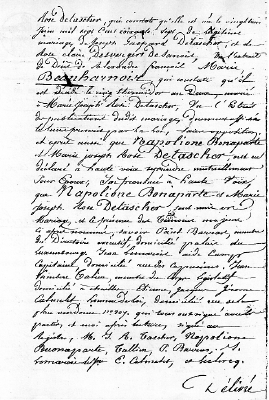 Rose detascher, qui constate qu'elle est née le vingt trois
juin mil sept cent soixante sept, de légitime
mariage de Joseph Gaspard Detascher, et de
rose claire
de Décès de alexandre françois Marie
Beauharnois, qui constate qu'il
est Décédé le cinq thermidor an Deux, marié
à Marie Joseph Rose Detascher,
de publications dudit mariage
le tems prescrit par la loi, sans opposition
et après aussi que Napolione Bonaparte
et Marie joseph Rose Detascher, ont
déclaré à haute voix se prendre mutuellement
pour Epoux, j'ai prononcé à haute Voix,
que Napolione Bonaparte et Marie
joseph Rose Detascher sont unis en
Mariage, et ce en présence des témoins majeurs
ci après nommé, savoir Paul Barras, membre
du Directoire exécutif, domicilié palais du
Luxembourg, Jean
Capitaine, domicilié rue des Capucines, Jean
Lambert Tallien, membre du Corps législatif
domicilié à chaillot, Etienne jacques jérome
Calmelet, homme de loi, domicilié rue
place vendome n° 207, qui tous ont signé avec les
parties, et moi après lecture, signé au
Registre, M. J. R. Tascher, Napolione
Buonaparte, Tallien, P. Barras,
E. Calmelet, et Leclercq.
Délivré